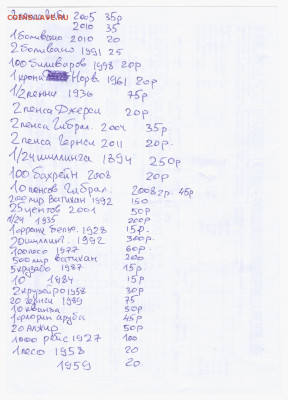 COINSS.RU
2005 35р
2010 35
1 боливиано 2010 20
2 боливано 1991 25
100 боливаров 1998 20р
1 крона Норв 1961 20р
1/2 пенни 1936 75р
2 пенса Джерси 20р
2 пенса Гибрал. 2004 35р
2 пенса Гернси 2011 20р.
1/24 шиллинга 1894 250р
100 Бахрейн 2008 20р
10 пенсов Гибрал. 2008 2р. 45р
200 лир Ватикан 1992 150
25 центов 2001 50р
1/24 1935 200р
1 франк Бельг. 1928 15р.
20 шиллинг. 1992 300р.
100 песо 1977 60р.
500 лир Ватикан 200
5 крузадо 1987 15р
10 1984 15р
2 крузейро 1958 30р
20 Гернси 1989 75
10 кванза 50р
1 флорин аруба 45р
20 Алжир 50р
1000 рейс 1927 100
1 песо 1958 20
1959 20